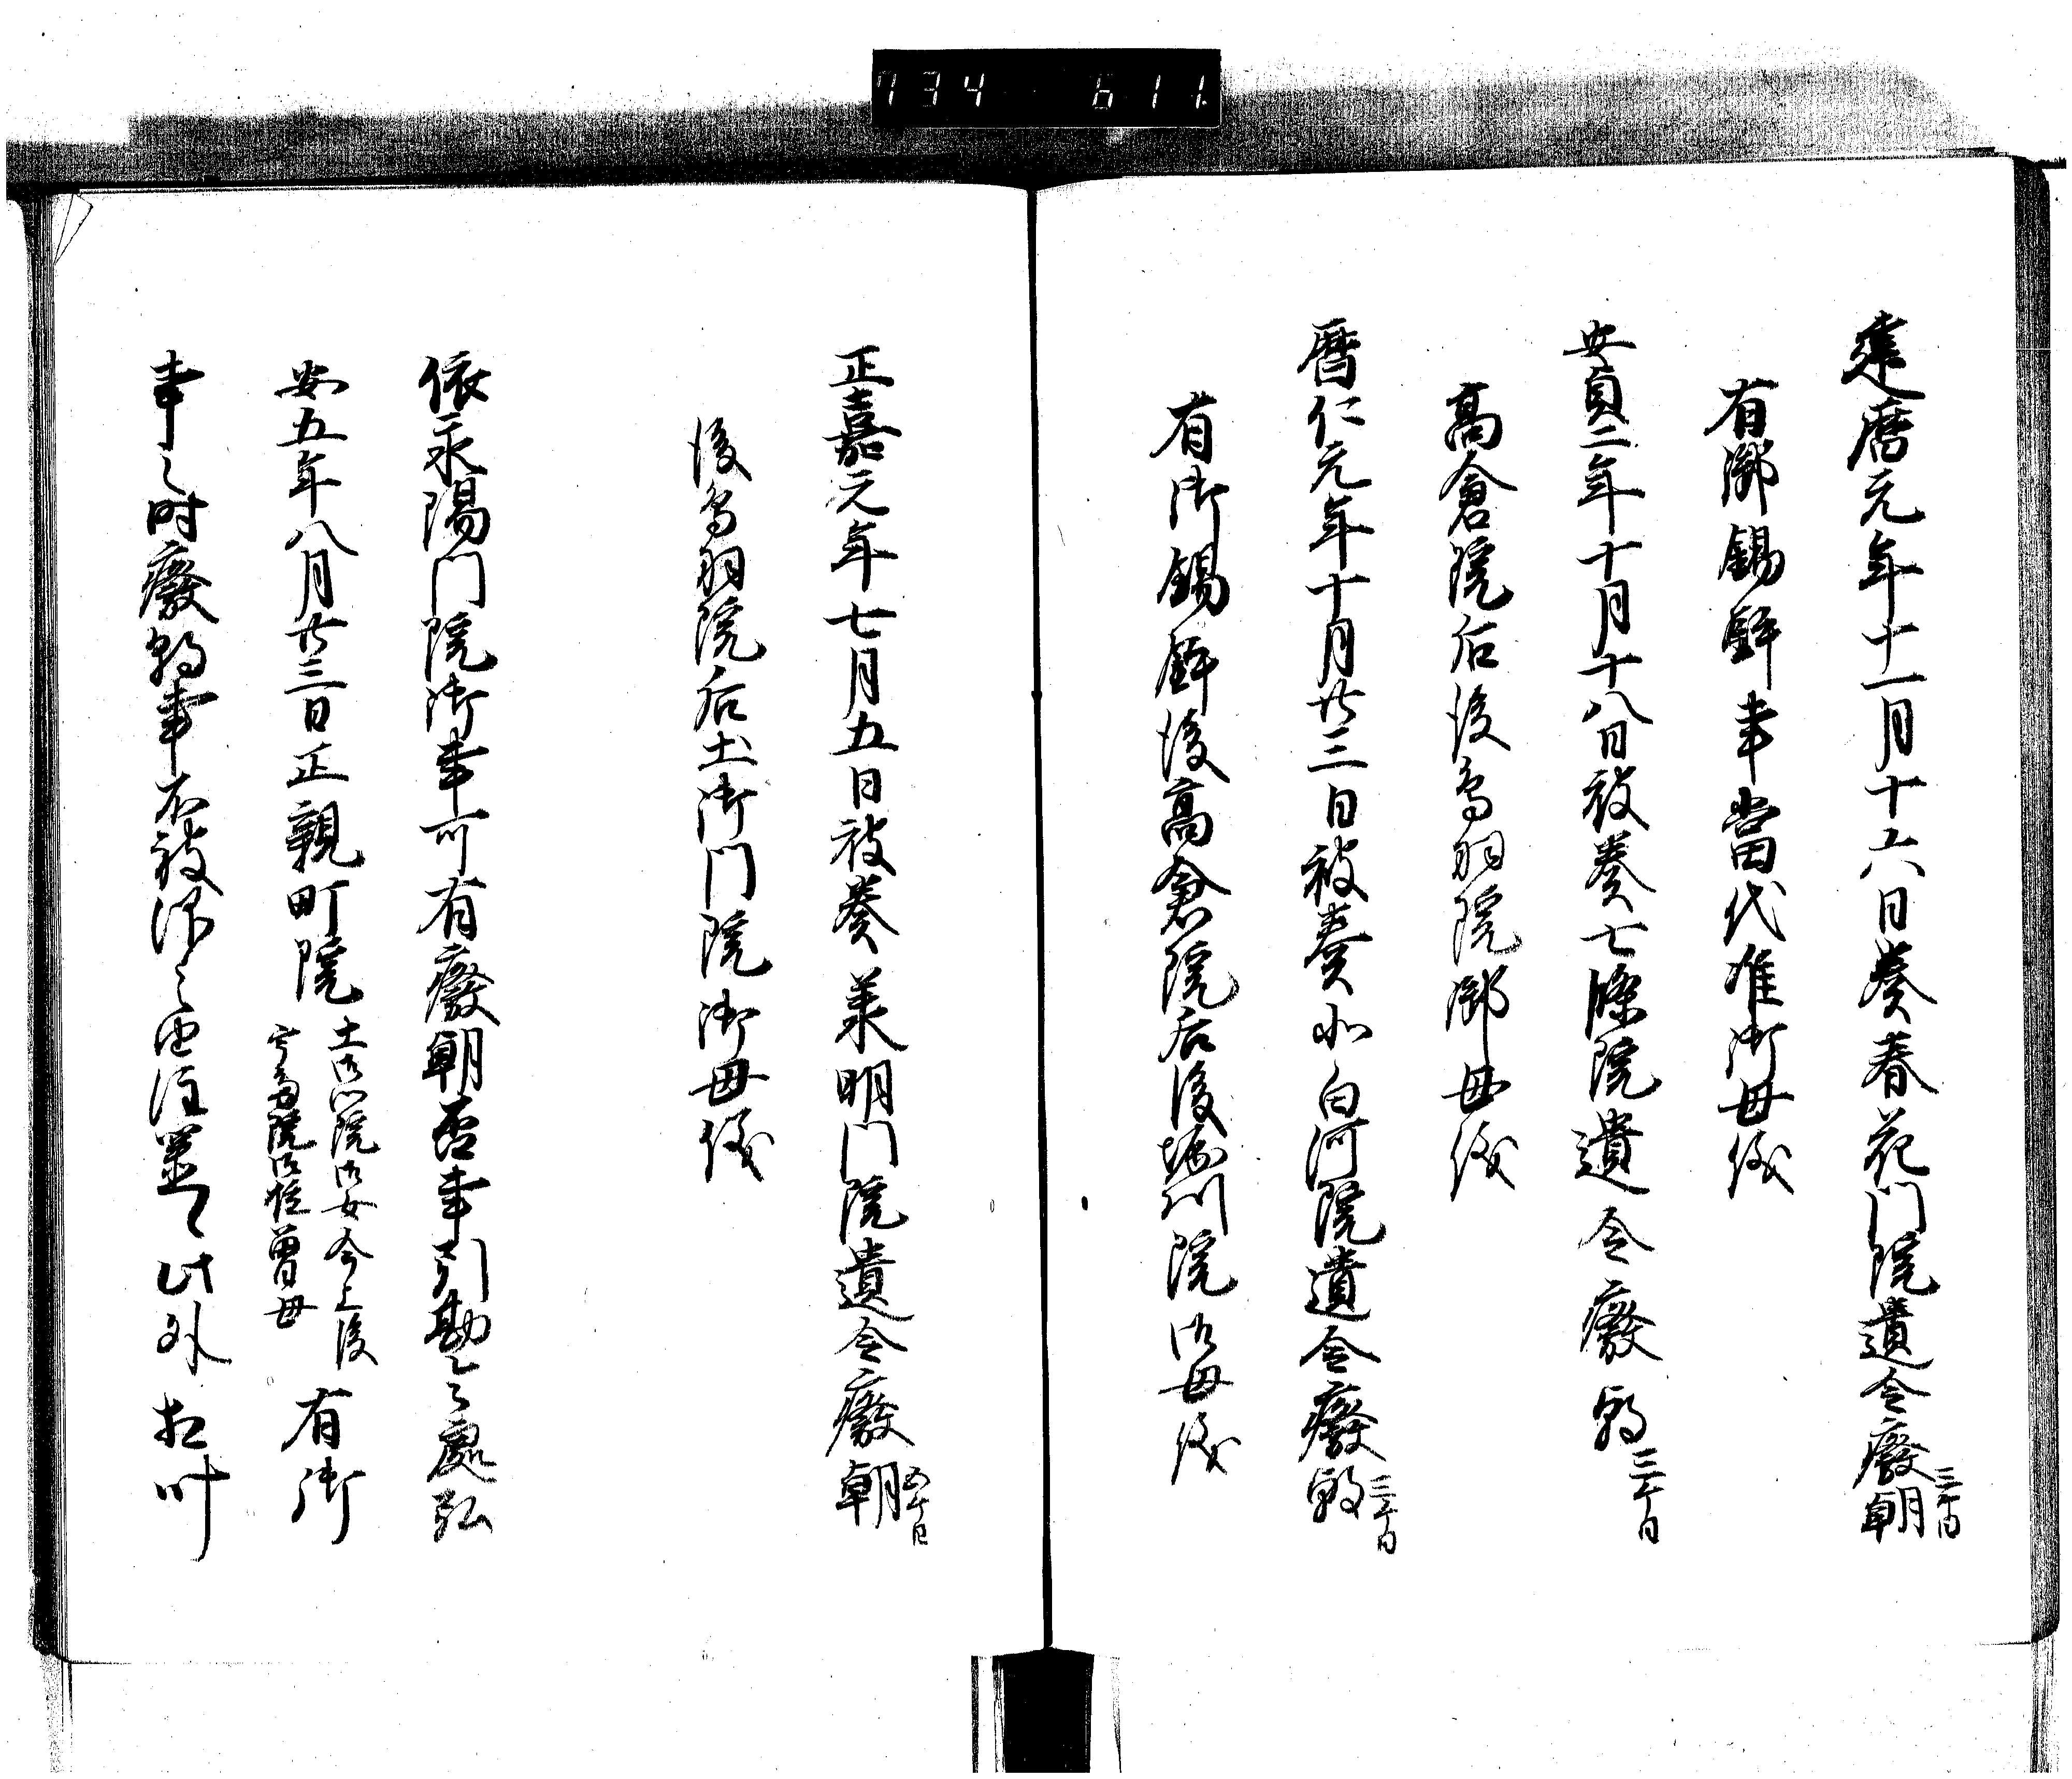 734 611
建暦元年十一月十六日奏春花門院遺令廢朝三ケ日
有御錫紵事當代准御母儀
安貞二年十月十八日被奏七條院遺令廢朝三ケ日
高倉院后後鳥羽院御母儀
暦仁元年十月廿三日被奏北白河院遺令廢朝三ケ日
有御錫紵後高倉院后後堀川院御母儀
正嘉元年七月五日被奏承明門院遺令廢朝五ケ日
後鳥羽院后土御門院御母儀
依永陽門院御事可有廢朝否事引勘之處弘
安五年八月廿三日正親町院土御門院御女今上後
宇多院御祖曽母有御
事之時廢朝事不被行之由注置了此外相叶